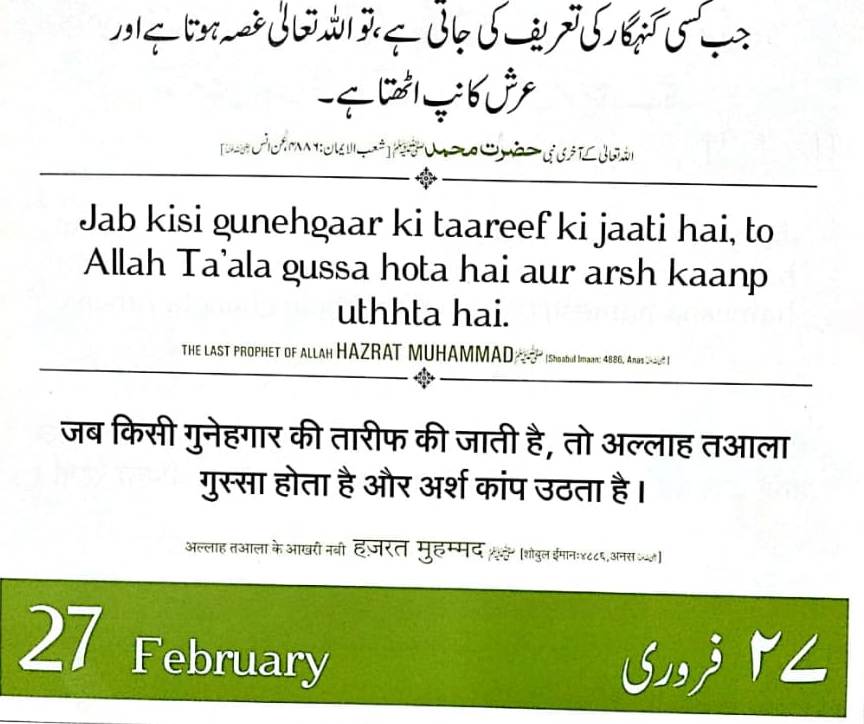 جب کسی گنہگار کی تعریف کی جاتی ہے، تو اللہ تعالیٰ غصہ ہوتا ہے اور
عرش کانپ اٹھتا ہے۔
اللہ تعالیٰ کے آخری نبی حضرت محمد ﷺ [شعب الایمان: ۴۸۸۶، عن انس]
Jab kisi gunehgaar ki taareef ki jaati hai, to
Allah Ta'ala gussa hota hai aur arsh kaanp
uthhta hai.
THE LAST PROPHET OF ALLAH HAZRAT MUHAMMAD ﷺ [Shoabul Imaan: 4886, Anas]
जब किसी गुनेहगार की तारीफ की जाती है, तो अल्लाह तआला
गुस्सा होता है और अर्श कांप उठता है।
अल्लाह तआला के आखरी नबी हज़रत मुहम्मद ﷺ [शोबुल ईमान:४८८६,अनस]
27 February
۲۷ فروری